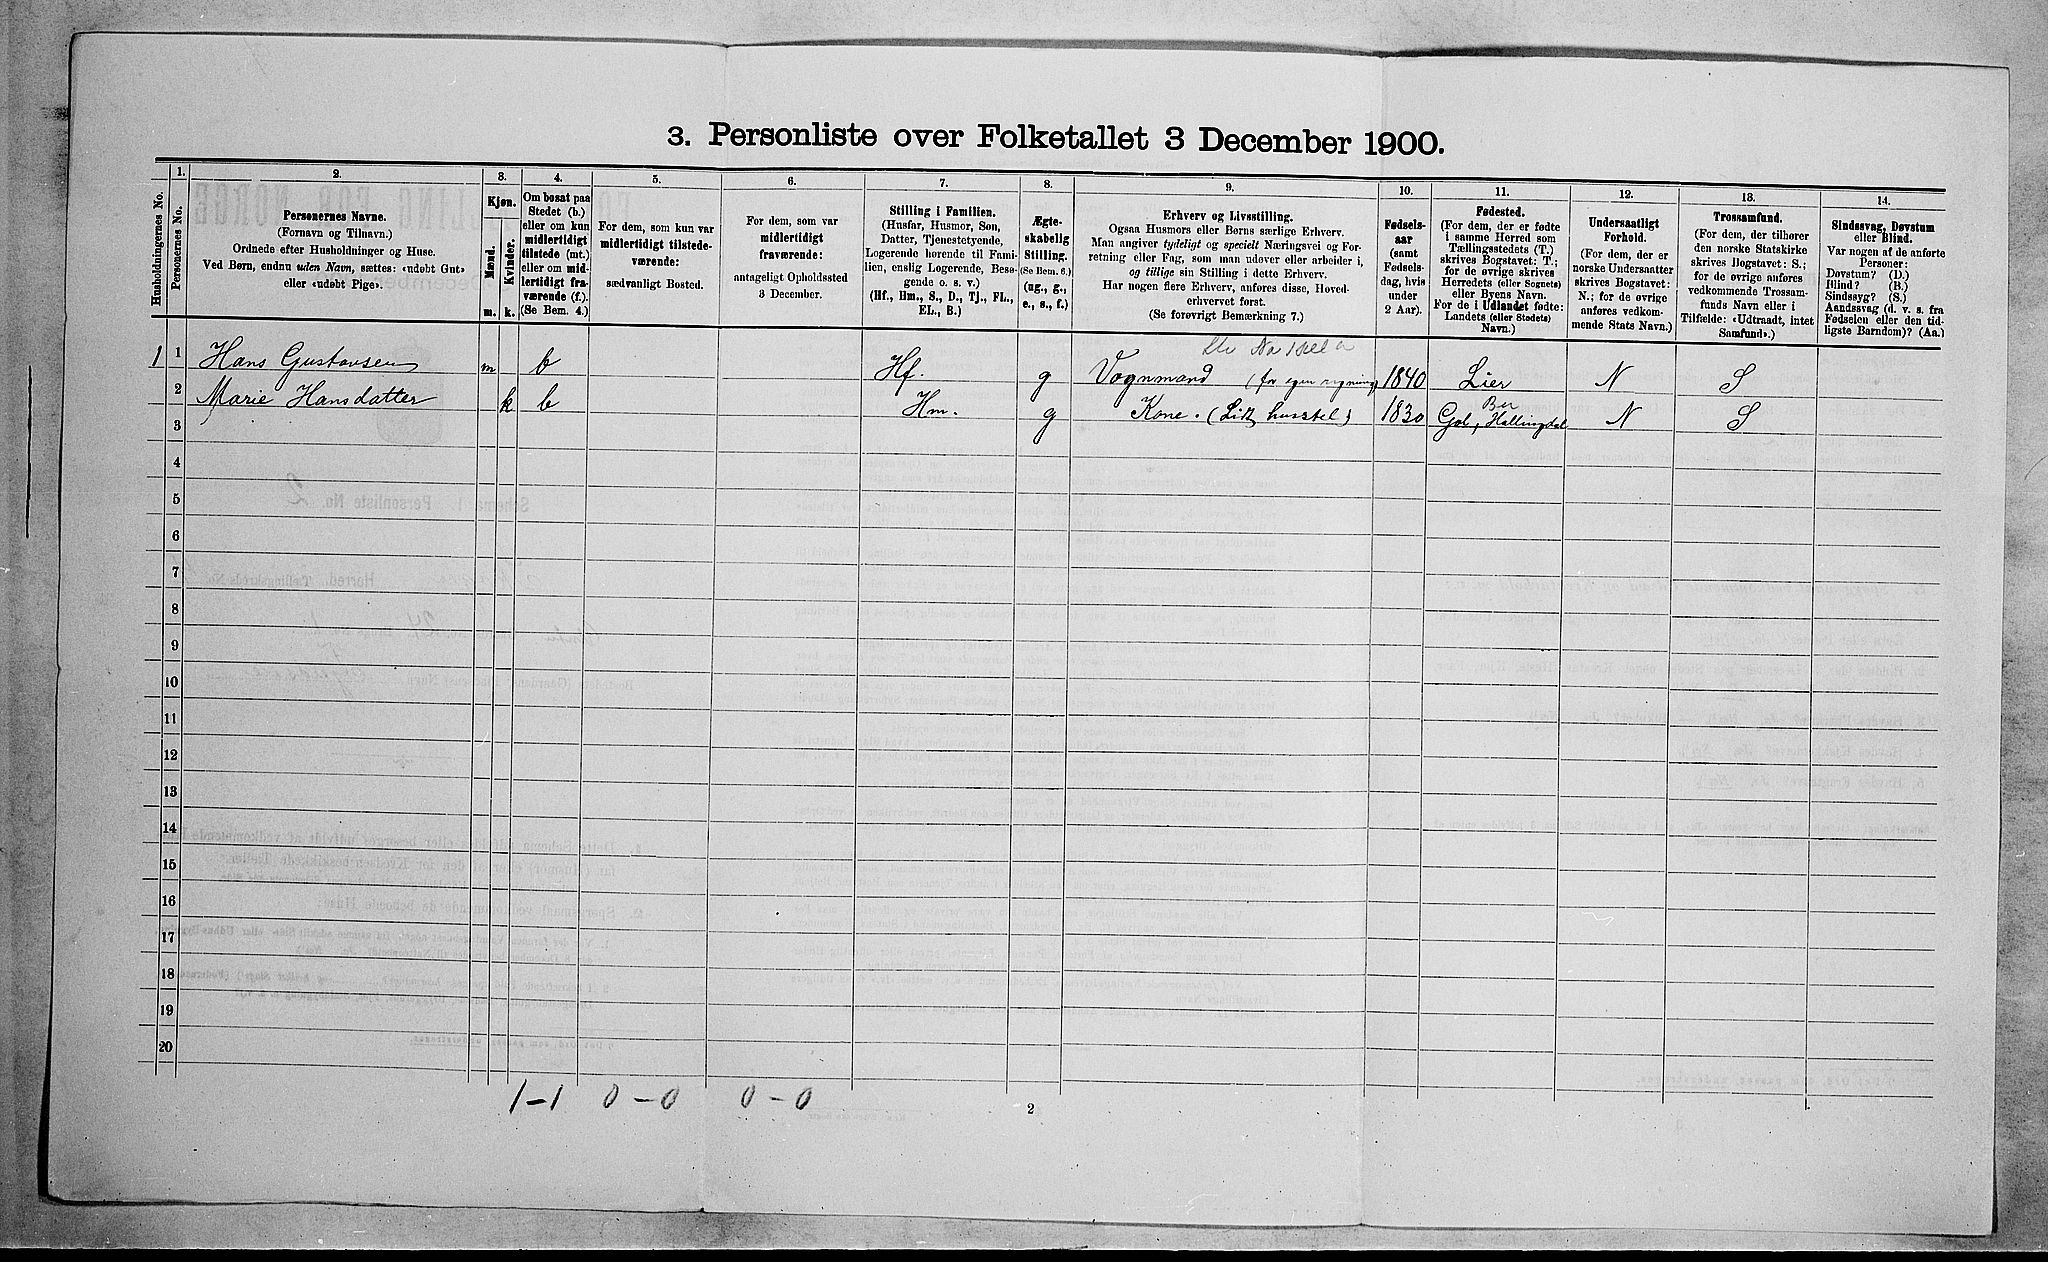 3. Personliste over Folketallet 3 December 1900.
Husholdningernes No.
1.
Personernes No.
2.
Personernes Navne.
(Fornavn og Tilnavn.)
Ordnede efter Husholdninger og Huse.
Ved Børn, endnu uden Navn, sættes: «udøbt Gut»
eller «udøbt Pige».
3.
Kjøn.
Mænd.
Kvinder.
m.
k.
4.
Om bosat paa
Stedet (b.)
eller om kun
midlertidigt
tilstede (mt.)
eller om mid-
lertidigt fra-
værende (f.)
(Se Bem. 4.)
5.
For dem, som kun var
midlertidigt tilstede-
værende:
sædvanligt Bosted.
6.
For dem, som var
midlertidigt
fraværende:
antageligt Opholdssted
3 December.
7.
Stilling i Familien.
(Husfar, Husmor, Søn,
Datter, Tjenestetyende,
Logerende hørende til Fami-
lien, enslig Logerende, Besø-
gende o. s. v.)
(Hf., Hm., S., D., Tj., FL.,
EL., B.)
8.
Ægte-
skabelig
Stilling.
(Se Bem. 6.)
(ug., g.,
e., s., f.)
9.
Erhverv og Livsstilling.
Ogsaa Husmors eller Børns særlige Erhverv.
Man angiver tydeligt og specielt Næringsvei og For-
retning eller Fag, som man udover eller arbeider i,
og tillige sin Stilling i dette Erhverv.
Har nogen flere Erhverv, anføres disse, Hoved-
erhvervet først.
(Se forøvrigt Bemærkning 7.)
10.
Fødsels-
aar
(samt
Fødsels-
dag, hvis
under
2 Aar).
11.
Fødested.
(For dem, der er fødte
i samme Herred som
Tællingsstedets (T.)
skrives Bogstavet: T.;
for de øvrige skrives
Herredets (eller Sognets)
eller Byens Navn.
For de i Udlandet fødte:
Landets (eller Stedets)
Navn.)
12.
Undersaatligt
Forhold.
(For dem, der er
norske Undersaatter
skrives Bogstavet:
N.; for de øvrige
anføres vedkom-
mende Stats Navn.)
13.
Trossamfund.
(For dem, der tilhører
den norske Statskirke
skrives Bogstavet: S.;
for de øvrige anføres
vedkommende Trossam-
funds Navn eller i
Tilfælde: «Udtraadt, intet
Samfund».)
14.
Sindssvag, Døvstum
eller Blind.
Var nogen af de anførte
Personer:
Døvstum? (D.)
Blind? (B.)
Sindssyg? (S.)
Aandssvag (d. v. s. fra
Fødselen eller den tid-
ligste Barndom)? (Aa.)
1 1 Hans Gustavsen m b Hf. g Vognmand (for egen regning) 1840 Lier N S
2 Marie Hansdatter k b Hm. g Kone. (Lidt husstel) 1830 Gol, Hallingdal Bu N S
3
4
5
6
7
8
9
10
11
12
13
14
15
16
17
18
19
20
1-1 0-0 0-0
2